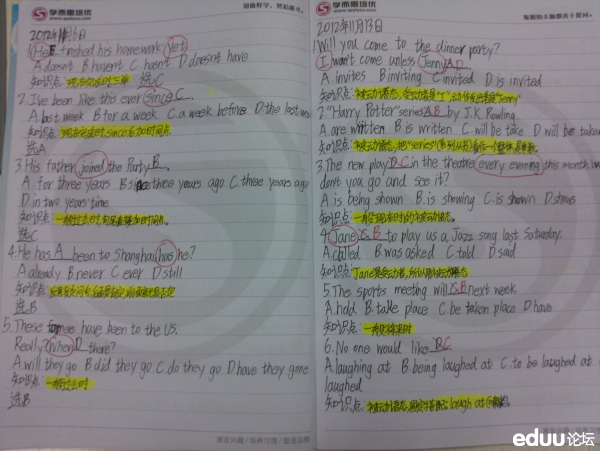 学而思培优
www.speiyou.com
2012年11月6日
1.Ha B finished his homework yet
A.doesn't B.haven't C.hasn't D.doesn't have
知识点: 现在完成时,三单 选C
2.I've been like this ever since C.
A.last week B.for a week C.a week before D.the last
知识点: 现在完成时,since后加时间点
选A
3.His father joined the Party B.
A. for three years B.since three years ago C.three years ago
D.in two years' time
知识点: 一般过去时,
选C
4.He has A been to Shanghai, has he?
A.already B.never C.ever D.still
知识点:
选B
5.These have been to the US.
Really? When D there?
A.will they go B.did they go C.do they go D.have they gone
知识点: 一般过去时
选B
激发兴趣/培养习惯/塑造品格
学而思培优
www.speiyou.com
2012年11月13日
1.Will you come to the dinner party?
I won't come unless Jenny A D.
A.invites B.inviting C.invited D.is invited
知识点: 被动语态,
2."Harry Potter" series A B by J.K.Rowling
A.are written B.is written C.will be take D.will be taken
知识点: 被动语态,把"series"
3.The new play D C in the theatre every evening this month.
don't you go and see it?
A.is being shown B.is showing C.is shown D.shows
知识点: 一般现在时的被动语态。
4.Jane C B to play us a Jazz song last Saturday.
A.called B.was asked C.told D.said
知识点: Jane是受动者,所以用被动语态
5.The sports meeting will B next week.
A.hold B.take place C.be taken place D.have
知识点: 一般将来时
6.No one would like B C.
A.laughing at B.being laughed at C.to be laughed at
laughed
知识点: 被动语态,固定搭配: laugh at
eduu论坛